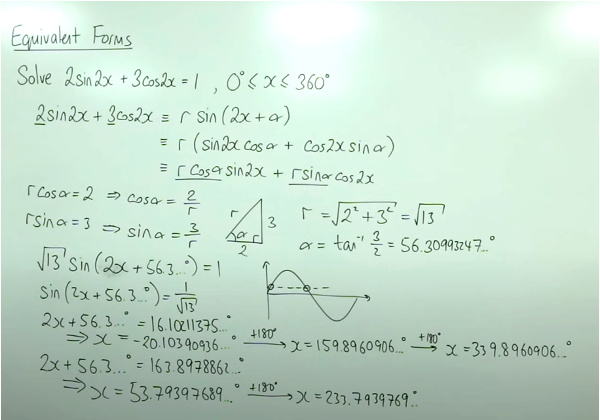 Equivalent Forms
Solve 2sin2x + 3cos2x = 1 , 0° ≤ x ≤ 360°
2sin2x + 3cos2x ≡ r sin (2x + α)
≡ r (sin2x cosα + cos2x sinα)
≡ r cosα sin2x + r sinα cos2x
r cosα = 2 ⇒ cosα = 2/r
r sinα = 3 ⇒ sinα = 3/r
r 3 α 2
r = √(2² + 3²) = √13
α = tan⁻¹ 3/2 = 56.30993247...°
√13 sin (2x + 56.3...°) = 1
sin (2x + 56.3...°) = 1/√13
2x + 56.3...° = 16.10211375...°
⇒ x = -20.10390936...° +180° → x = 159.8960906...° +180° → x = 339.8960906...°
2x + 56.3...° = 163.8978862...°
⇒ x = 53.79397689...° +180° → x = 233.7939769...°